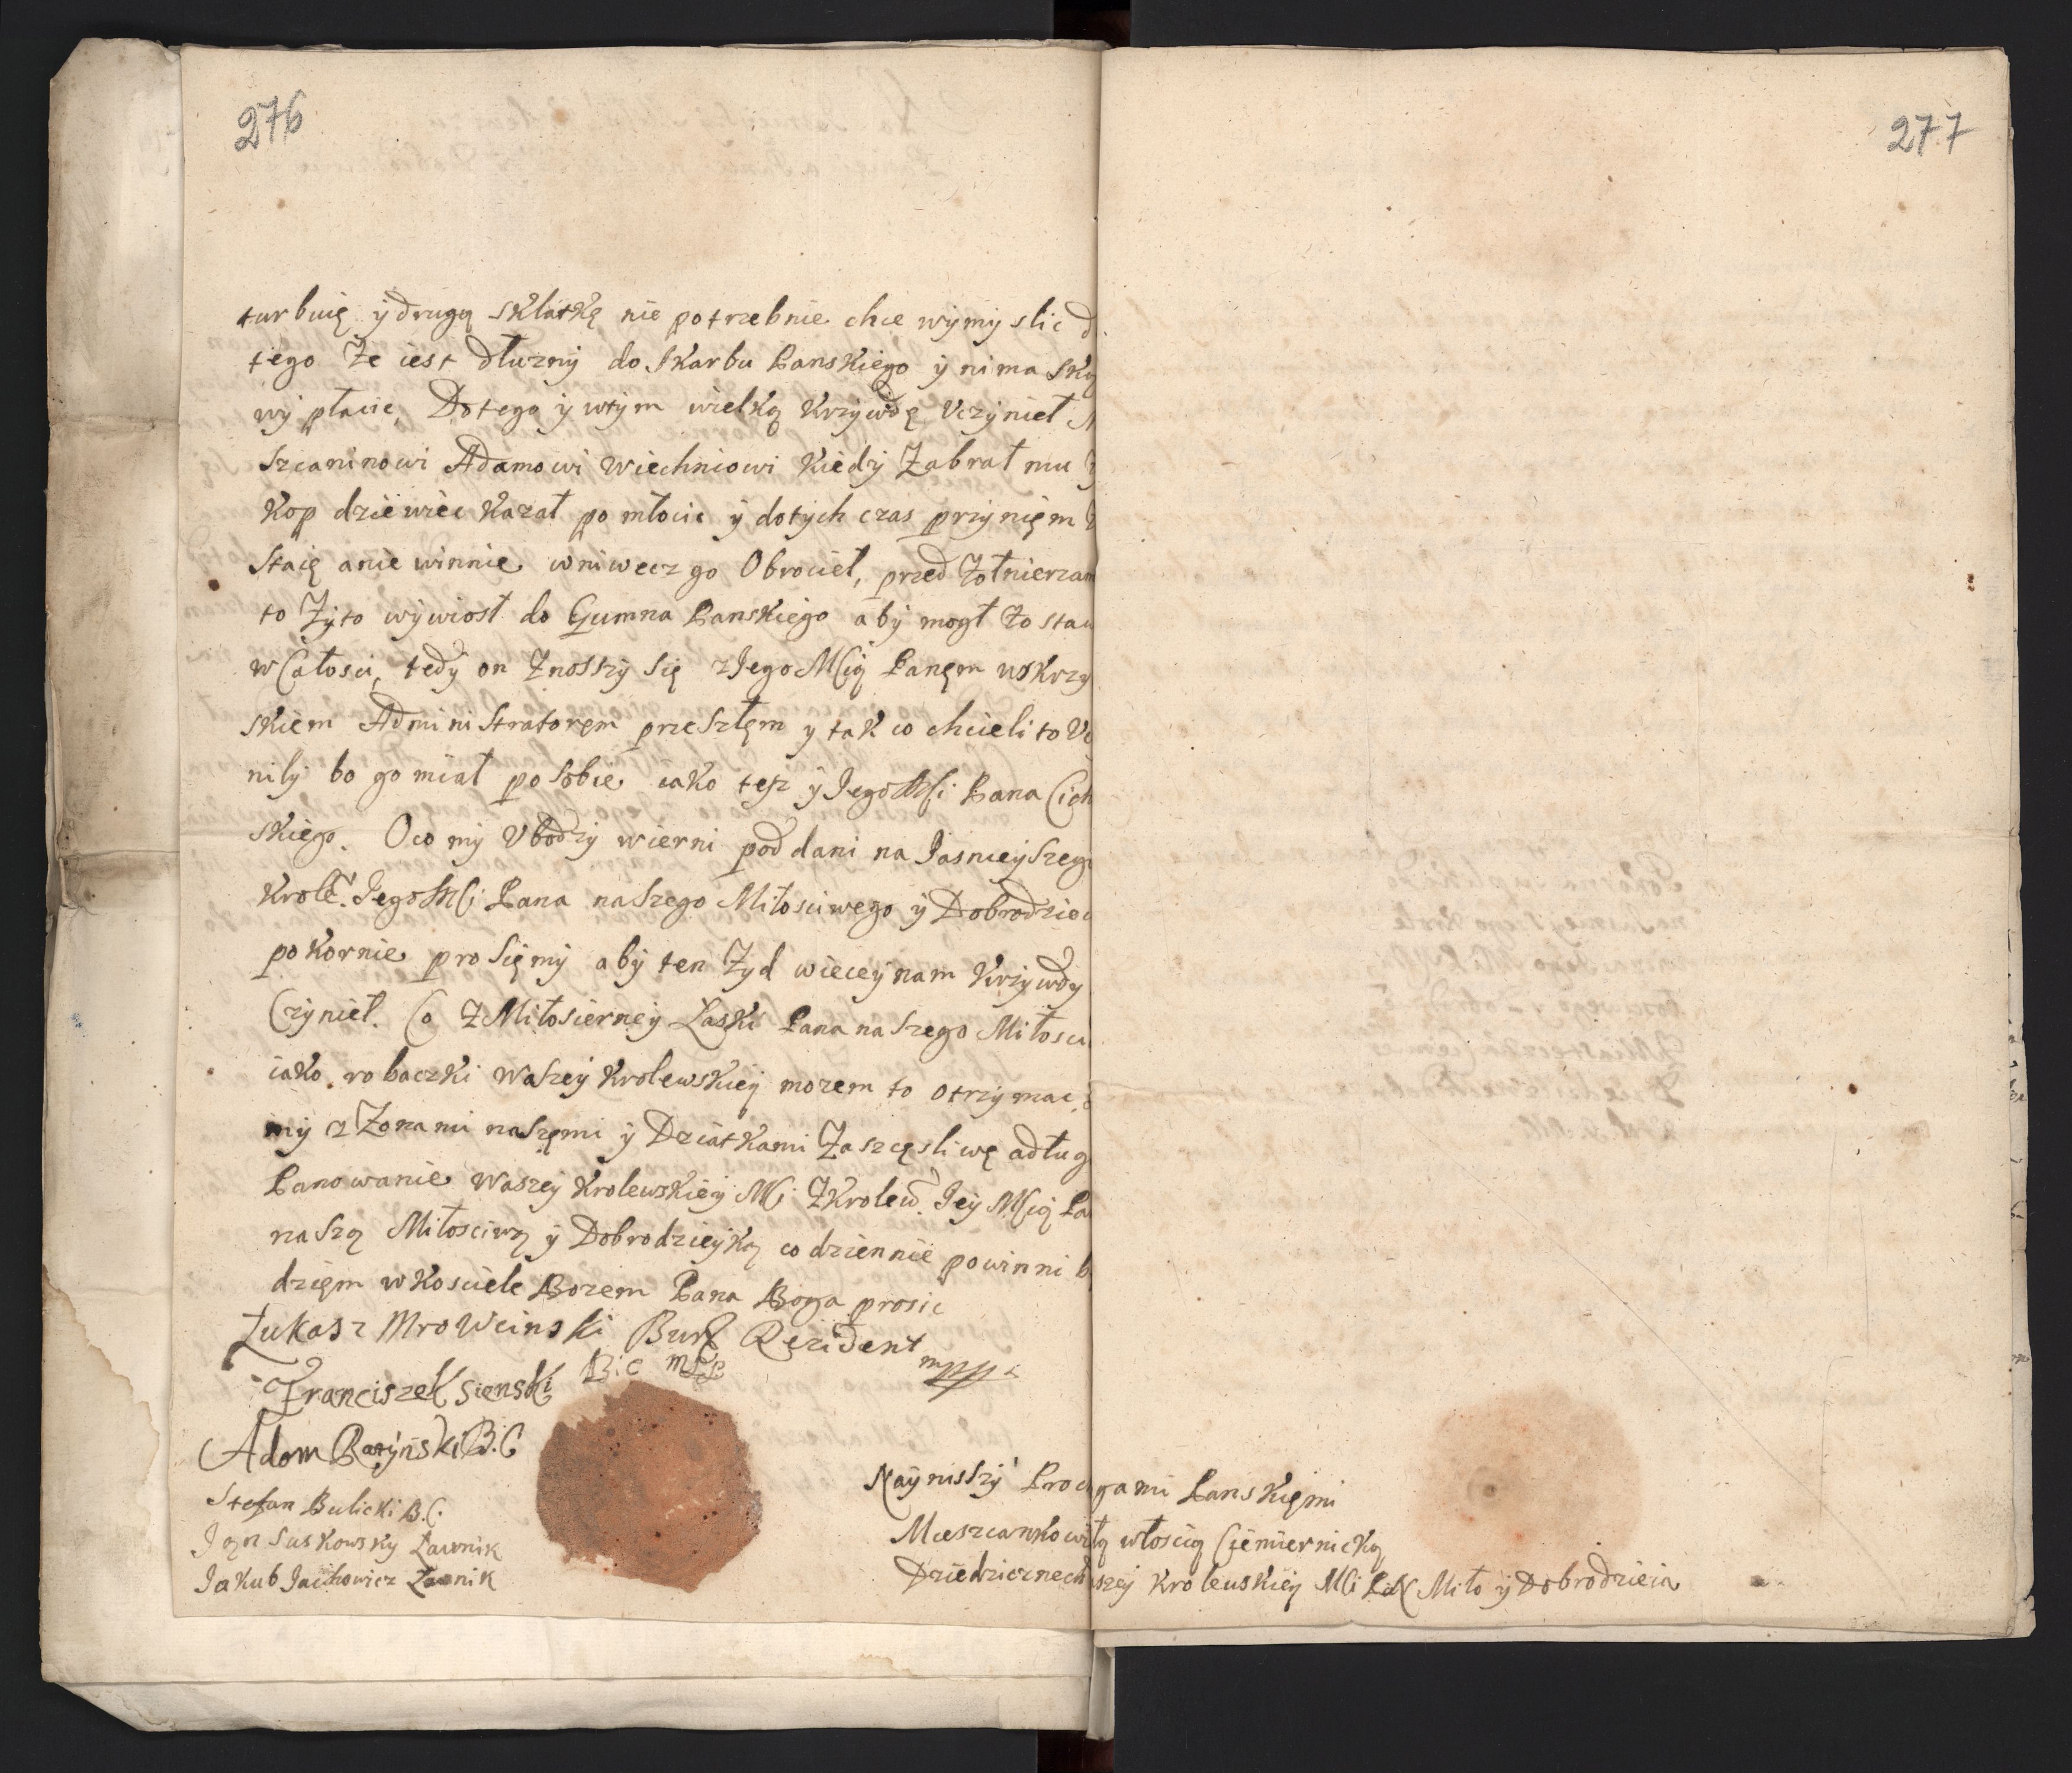 276
277
turbuię ÿ drugą sklatkę nie potrzebnie chce wÿmÿslic d
tego Ze iest dłuznÿ do skarbu Panskiego ÿ nima ską
wÿ płacic, Dotego ÿ wtÿm wielką krzÿwdę Vczÿnieł M
szcaninowi Adamowi Wiechniowi kiedÿ Zabrał mu
kop dziewiec kazał po młocic ÿ dotÿch czas przÿnięm
staię anie winnie wniwecz go Obrocieł, przed Zołnierzam
to Zÿto wÿwiosł do Gumna Panskiego abÿ mogł zostac
w Całosci, tedÿ on Znosszÿ się z Jego Mscią Panęm uskrzÿ
skiem Administratoręm przeszłęm ÿ tak co chcieli to Vc
nilÿ bo go miał po sobie iako tesz ÿ Jego Msci Pana Cich
skiego. Oco mÿ Vbodzÿ wierni poddani na Jasnieÿszego
Krolẽ. Jego Msci Pana naszego Miłosciwego ÿ Dobrodziei
pokornie prosięmÿ abÿ ten Zÿd wieceÿ nam krzÿwdÿ
Czÿnieł. Co Z Miłosierneÿ Łaski Pana naszego Miłosci
iako robaczki Waszeÿ krolewskieÿ mozem to otrzÿmac,
mÿ z Zonami naszęmi ÿ Dziatkami Za szcęsliwę a dług
Panowanie Waszeÿ Krolewskieÿ Msci Z Krolew. Jeÿ Mscią Pa
naszą Miłosciwą ÿ Dobrodzieÿką codziennie powinni b
dzięm w kosciele Bozem Pana Boga prosic
Łukasz Mrowcinski Bur Rezident
mpp
Franciszek sienski B: C mpp
Adam Ratÿnski B. C
Stefan Bulicki B. C.
Jan Suskowskÿ Ławnik
Jakub Jachowicz Ławnik
Naÿnisszÿ Progami Panskięmi
Mieszcanko włoscią Ciemiernicką
Dziedzicznech szeÿ Krolewskieÿ Msci Miło ÿ Dobrodzieia